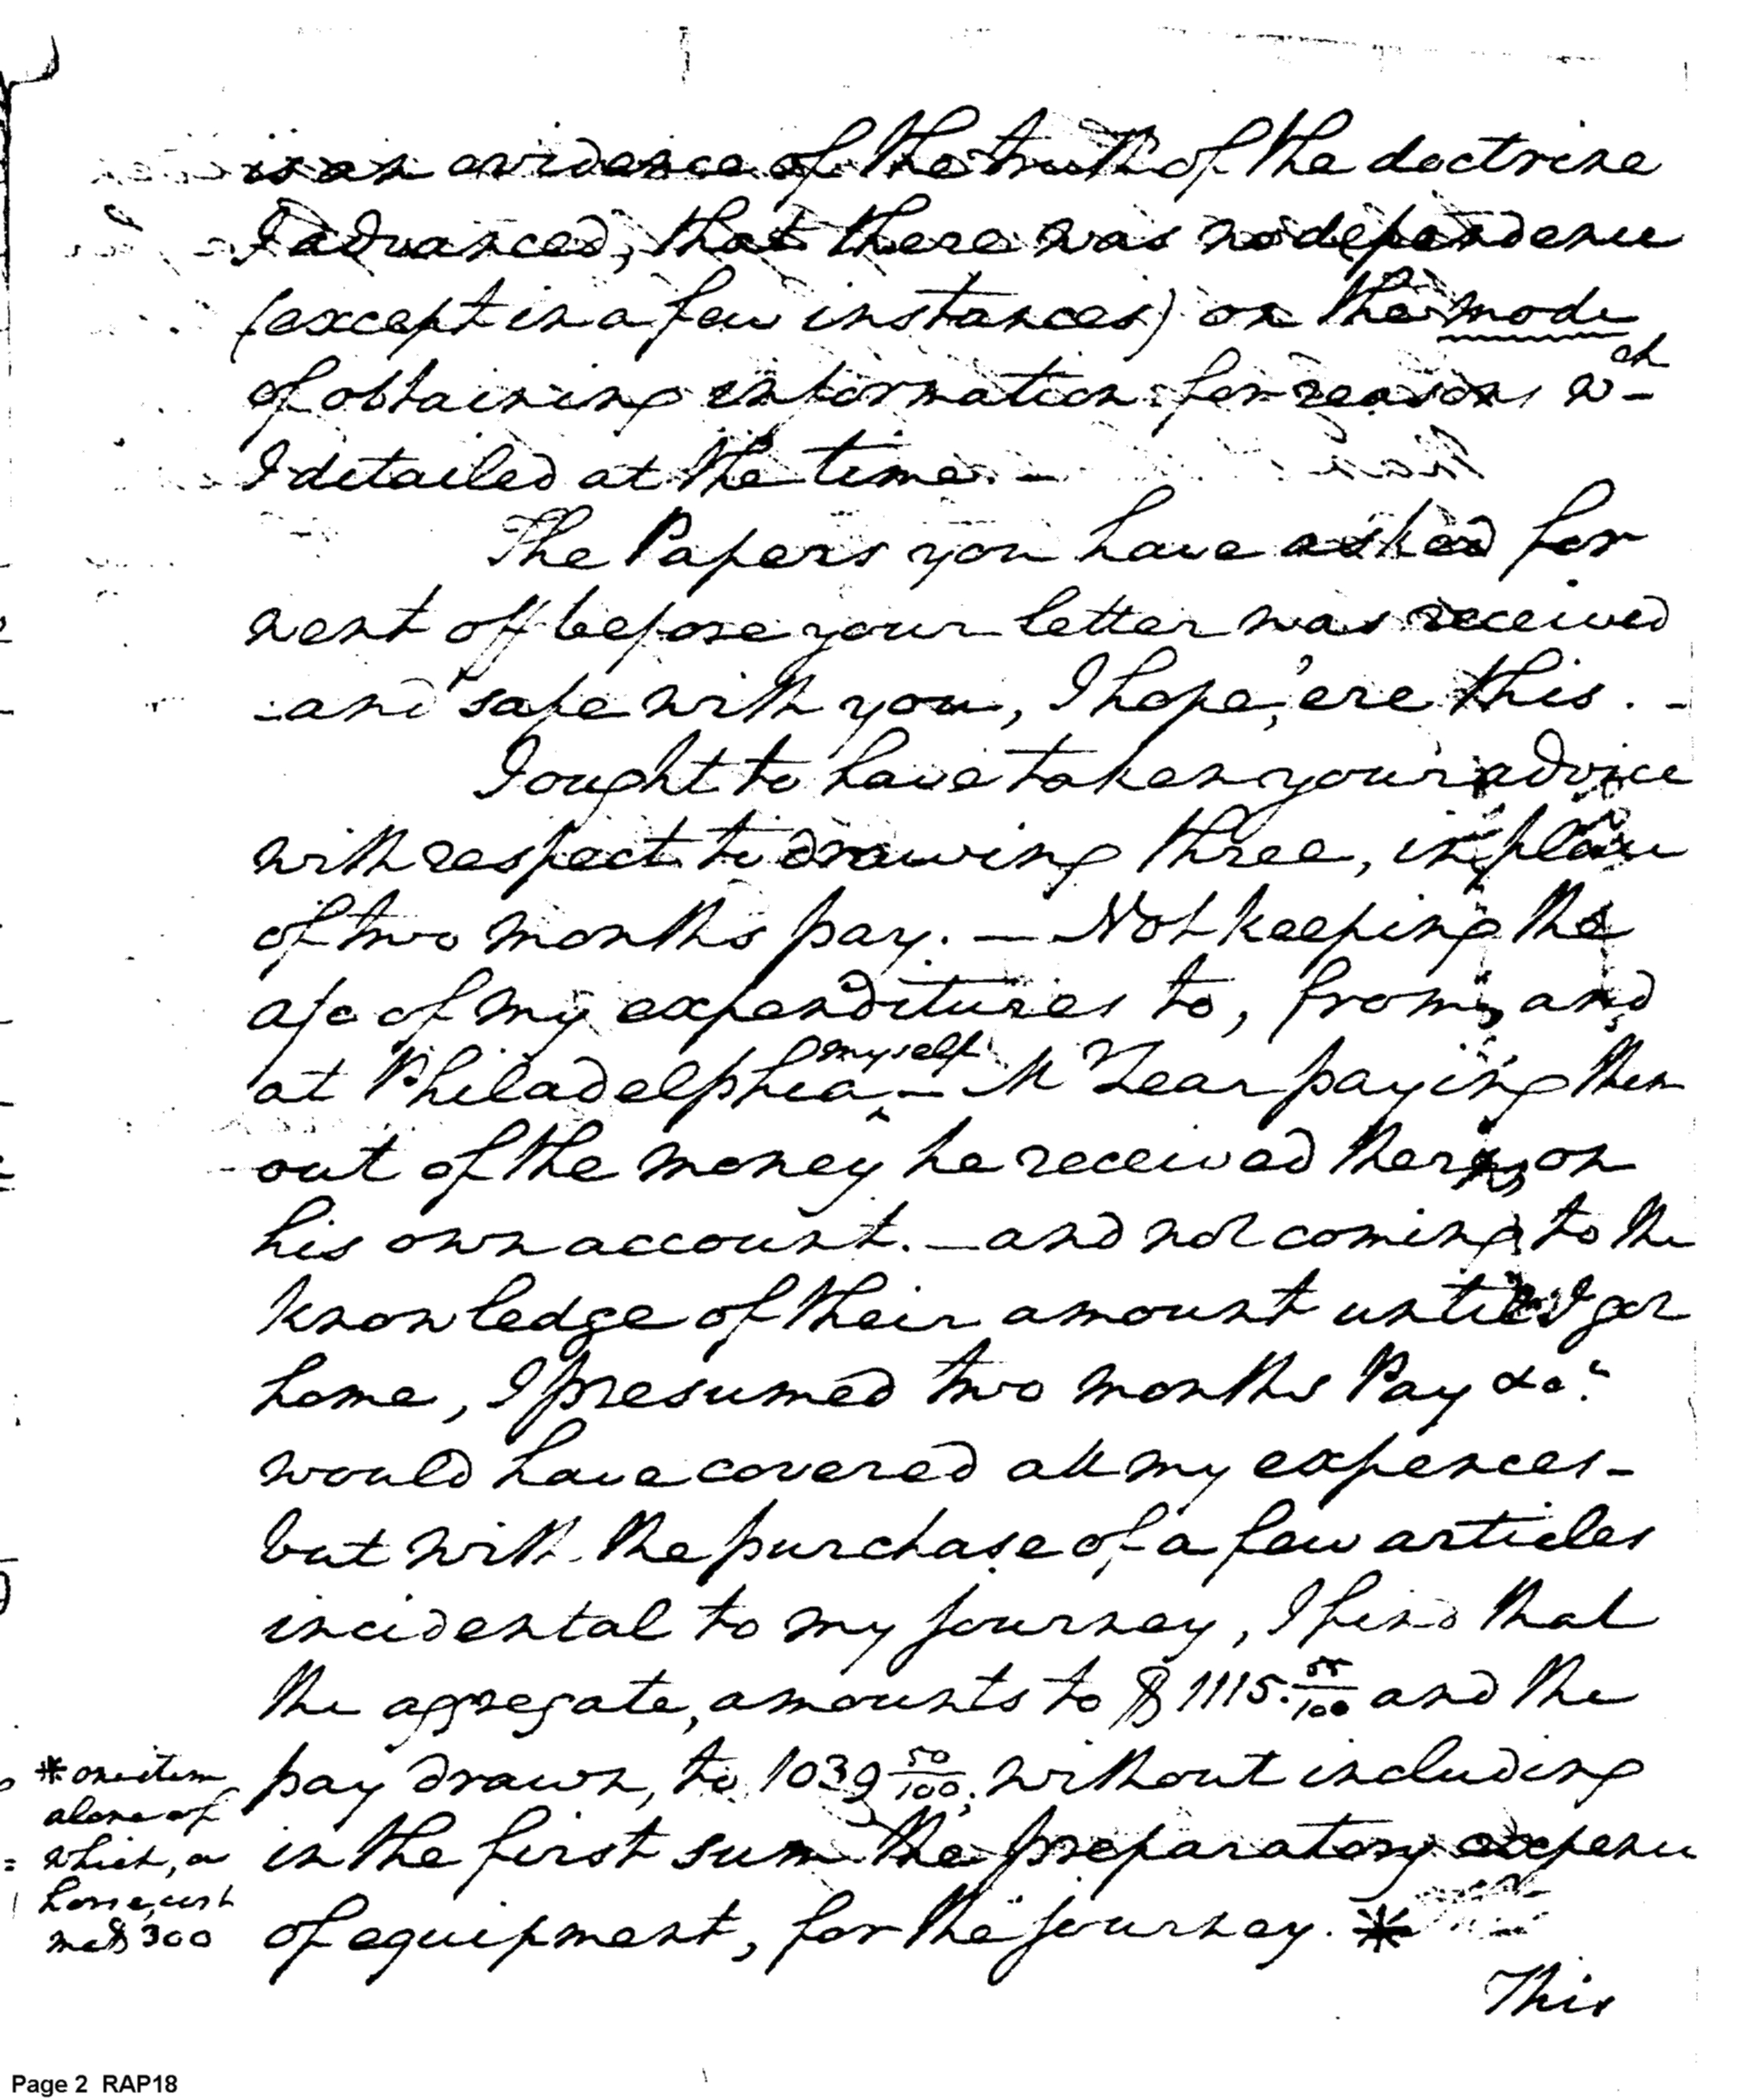 is an evidence of the truth of the doctrine
I advanced, that there was no dependence
(except in a few instances) on the mode
of obtaining information for reasons wch
I detailed at the time. —
The Papers you have asked for
went off before your letter was received
- and safe with you, I hope, 'ere this. -
I ought to have taken your advice
with respect to drawing three, in place
of two months pay. — Not keeping the
a/c of my expenditures to, from, and
at Philadelphia, myself — Mr Lear paying them
out of the money he received there, on
his own account. — and not coming to the
knowledge of their amount until I got
home, I presumed two months Pay &ca
would have covered all my expences -
but with the purchase of a few articles
incidental to my journey, I find that
the aggregate, amounts to $1115.55/100 and the
pay drawn, to 1039 50/100; without including
in the first sum the preparatory expence
of equipment, for the journey. *
* one item
alone of
which, a
horse, cost
me $300
This
Page 2 RAP18